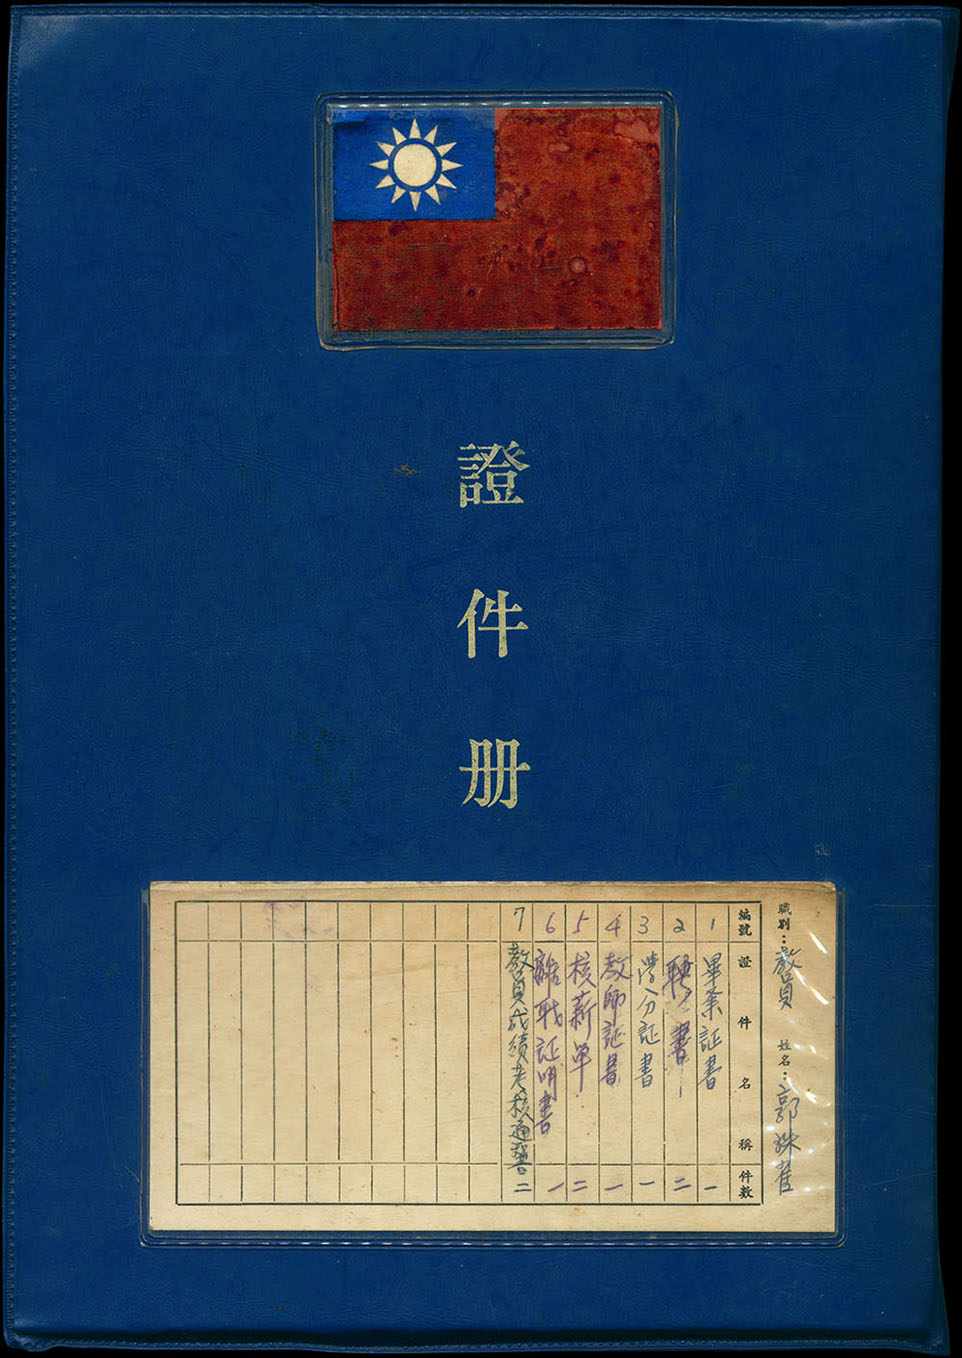 證件冊
職別：教員 姓名：郭
編號 證件名稱 件數
1 畢業証書 一
2 聘書 二
3 學分証書 一
4 教師証書 一
5 核薪單 二
6 離職証明書 一
7 教員成績考核通知書 二